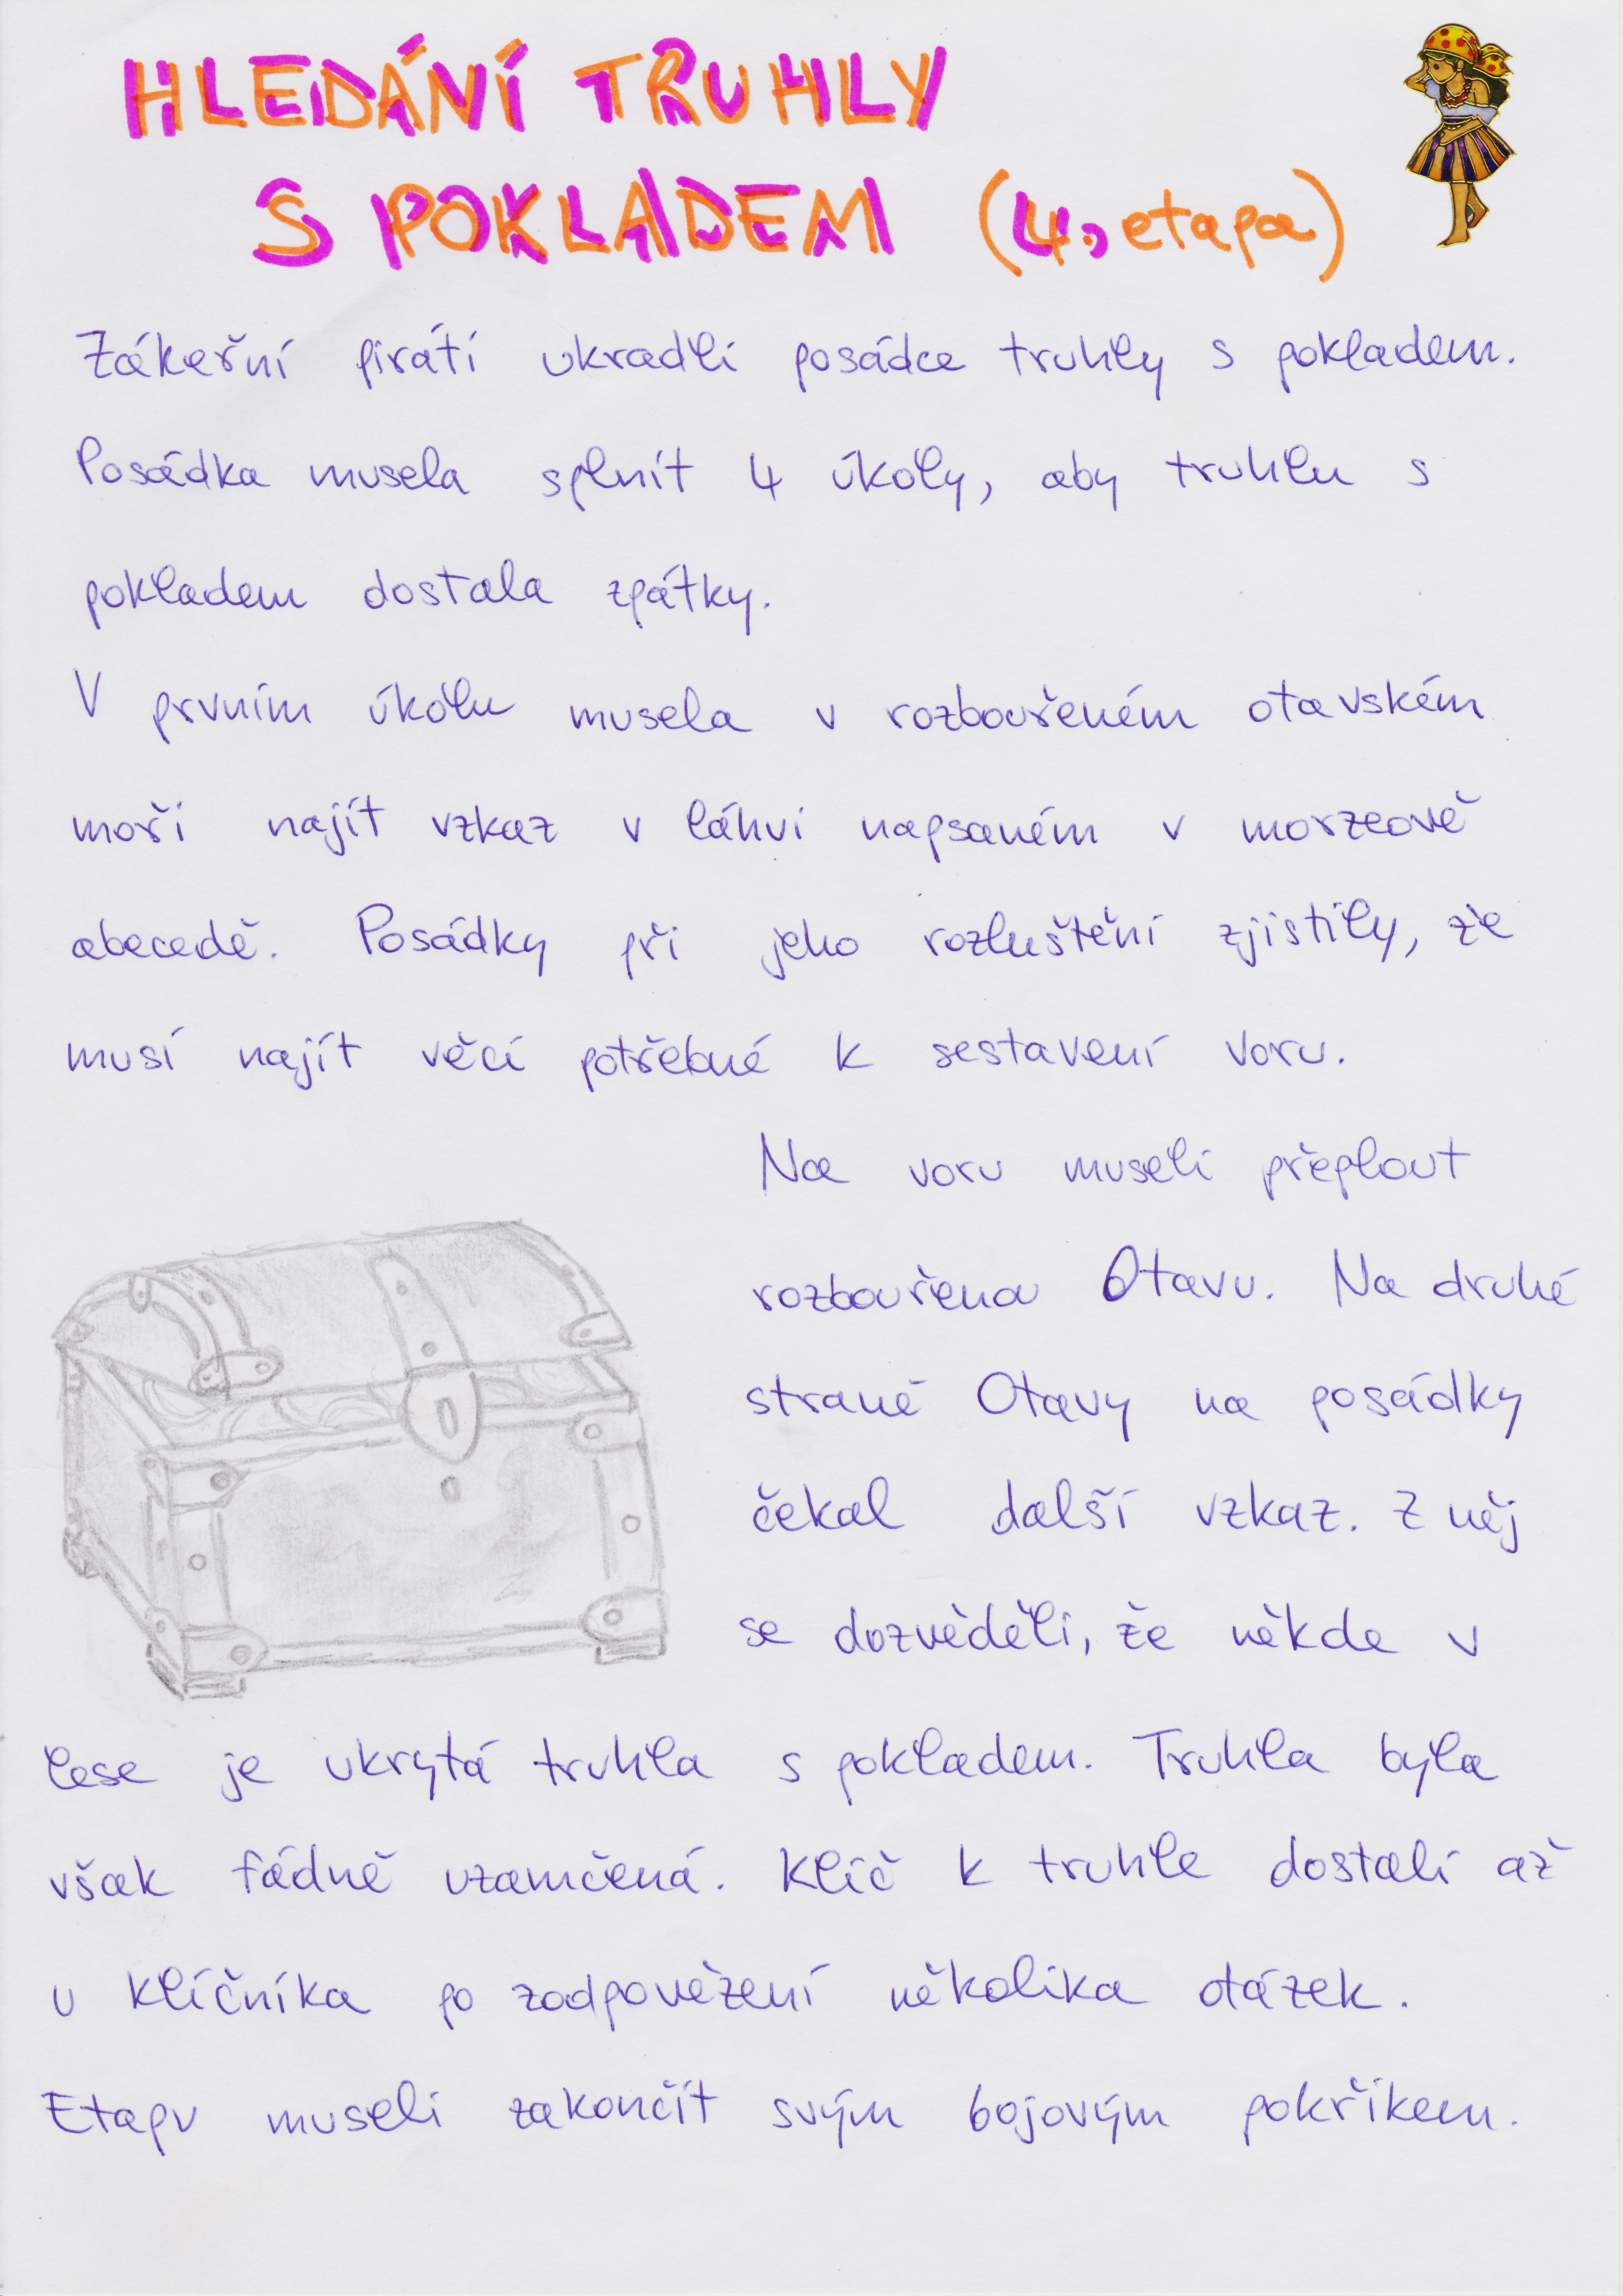 HLEDÁNÍ TRUHLY
S POKLADEM (4. etapa)
Zákeřní piráti ukradli posádce truhly s pokladem.
Posádka musela splnit 4 úkoly, aby truhlu s
pokladem dostala zpátky.
V prvním úkolu musela v rozbouřeném otavském
moři najít vzkaz v láhvi napsaném v morzeově
abecedě. Posádky při jeho rozluštění zjistily, že
musí najít věcí potřebné k sestavení voru.
Na voru museli přeplout
rozbouřenou Otavu. Na druhé
straně Otavy na posádky
čekal další vzkaz. Z něj
se dozvěděli, že někde v
lese je ukrytá truhla s pokladem. Truhla byla
však řádně uzamčená. Klíč k truhle dostali až
u klíčníka po zodpovězení několika otázek.
Etapu museli zakončit svým bojovým pokřikem.